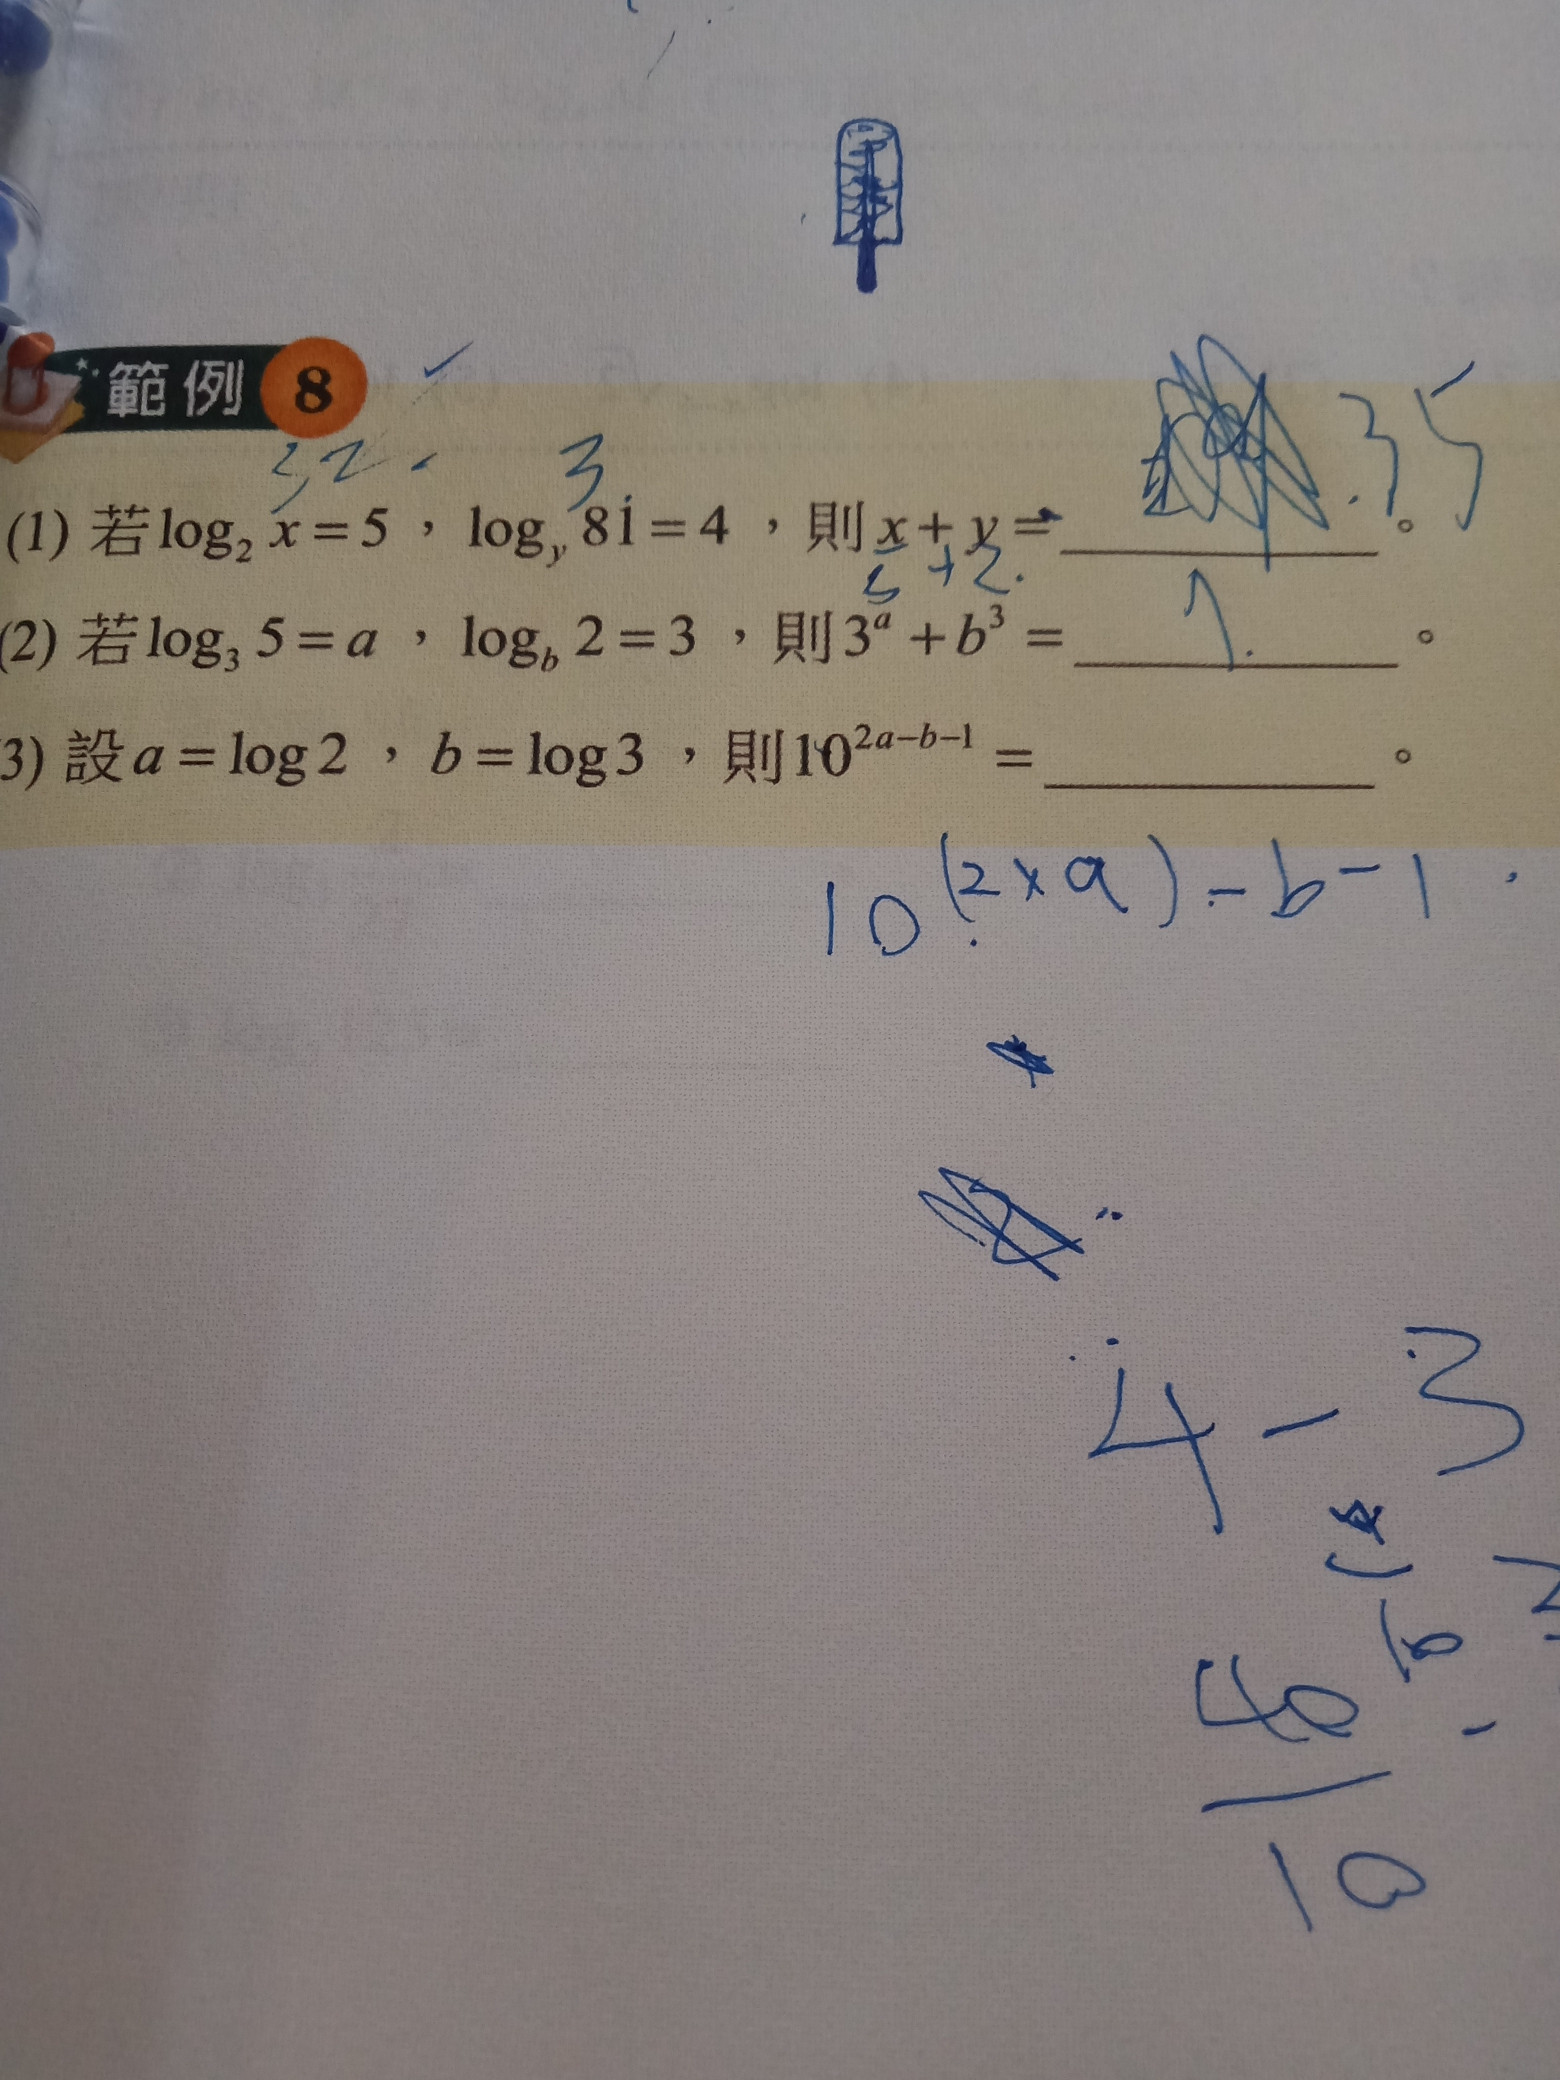 範例 8
32 3 35
(1) 若 log₂ x = 5 ， log_y 81 = 4 ，則 x + y = ______ 。
5 + 2. 7.
(2) 若 log₃ 5 = a ， log_b 2 = 3 ，則 3ᵃ + b³ = ______ 。
(3) 設 a = log 2 ， b = log 3 ，則 10^{2a-b-1} = ______ 。
10^{(2×a)-b-1}
4 - 3
10